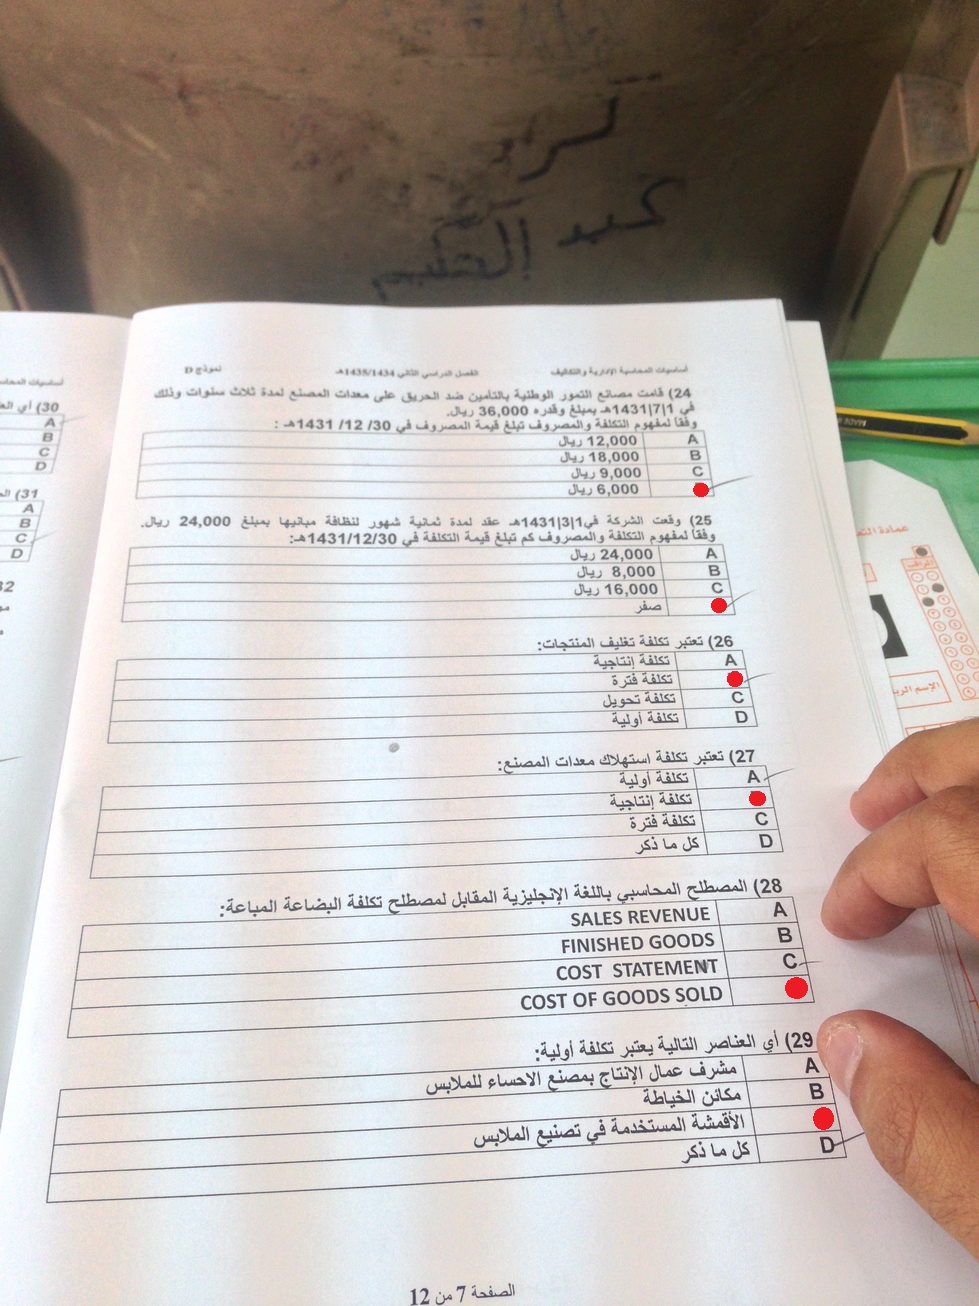 عبد الحكيم
أساسيات المحاسبة الإدارية والتكاليف الفصل الدراسي الثاني 1435/1434هـ نموذج D
24) قامت مصانع التمور الوطنية بالتأمين ضد الحريق على معدات المصنع لمدة ثلاث سنوات وذلك
في 1|7|1431هـ بمبلغ وقدره 36,000 ريال.
وفقاً لمفهوم التكلفة والمصروف تبلغ قيمة المصروف في 30/ 12/ 1431هـ :
A 12,000 ريال
B 18,000 ريال
C 9,000 ريال
6,000 ريال
25) وقعت الشركة في1|3|1431هـ عقد لمدة ثمانية شهور لنظافة مبانيها بمبلغ 24,000 ريال.
وفقاً لمفهوم التكلفة والمصروف كم تبلغ قيمة التكلفة في 1431/12/30هـ:
A 24,000 ريال
B 8,000 ريال
C 16,000 ريال
صفر
26) تعتبر تكلفة تغليف المنتجات:
A تكلفة إنتاجية
تكلفة فترة
C تكلفة تحويل
D تكلفة أولية
27) تعتبر تكلفة استهلاك معدات المصنع:
A تكلفة أولية
تكلفة إنتاجية
C تكلفة فترة
D كل ما ذكر
28) المصطلح المحاسبي باللغة الإنجليزية المقابل لمصطلح تكلفة البضاعة المباعة:
A SALES REVENUE
B FINISHED GOODS
C COST STATEMENT
COST OF GOODS SOLD
29) أي العناصر التالية يعتبر تكلفة أولية:
A مشرف عمال الإنتاج بمصنع الاحساء للملابس
B مكائن الخياطة
الأقمشة المستخدمة في تصنيع الملابس
D كل ما ذكر
الصفحة 7 من 12
أساسيات المحاس
30) أي
A
B
C
D
31)
A
B
C
D
32
عمادة
الإسم